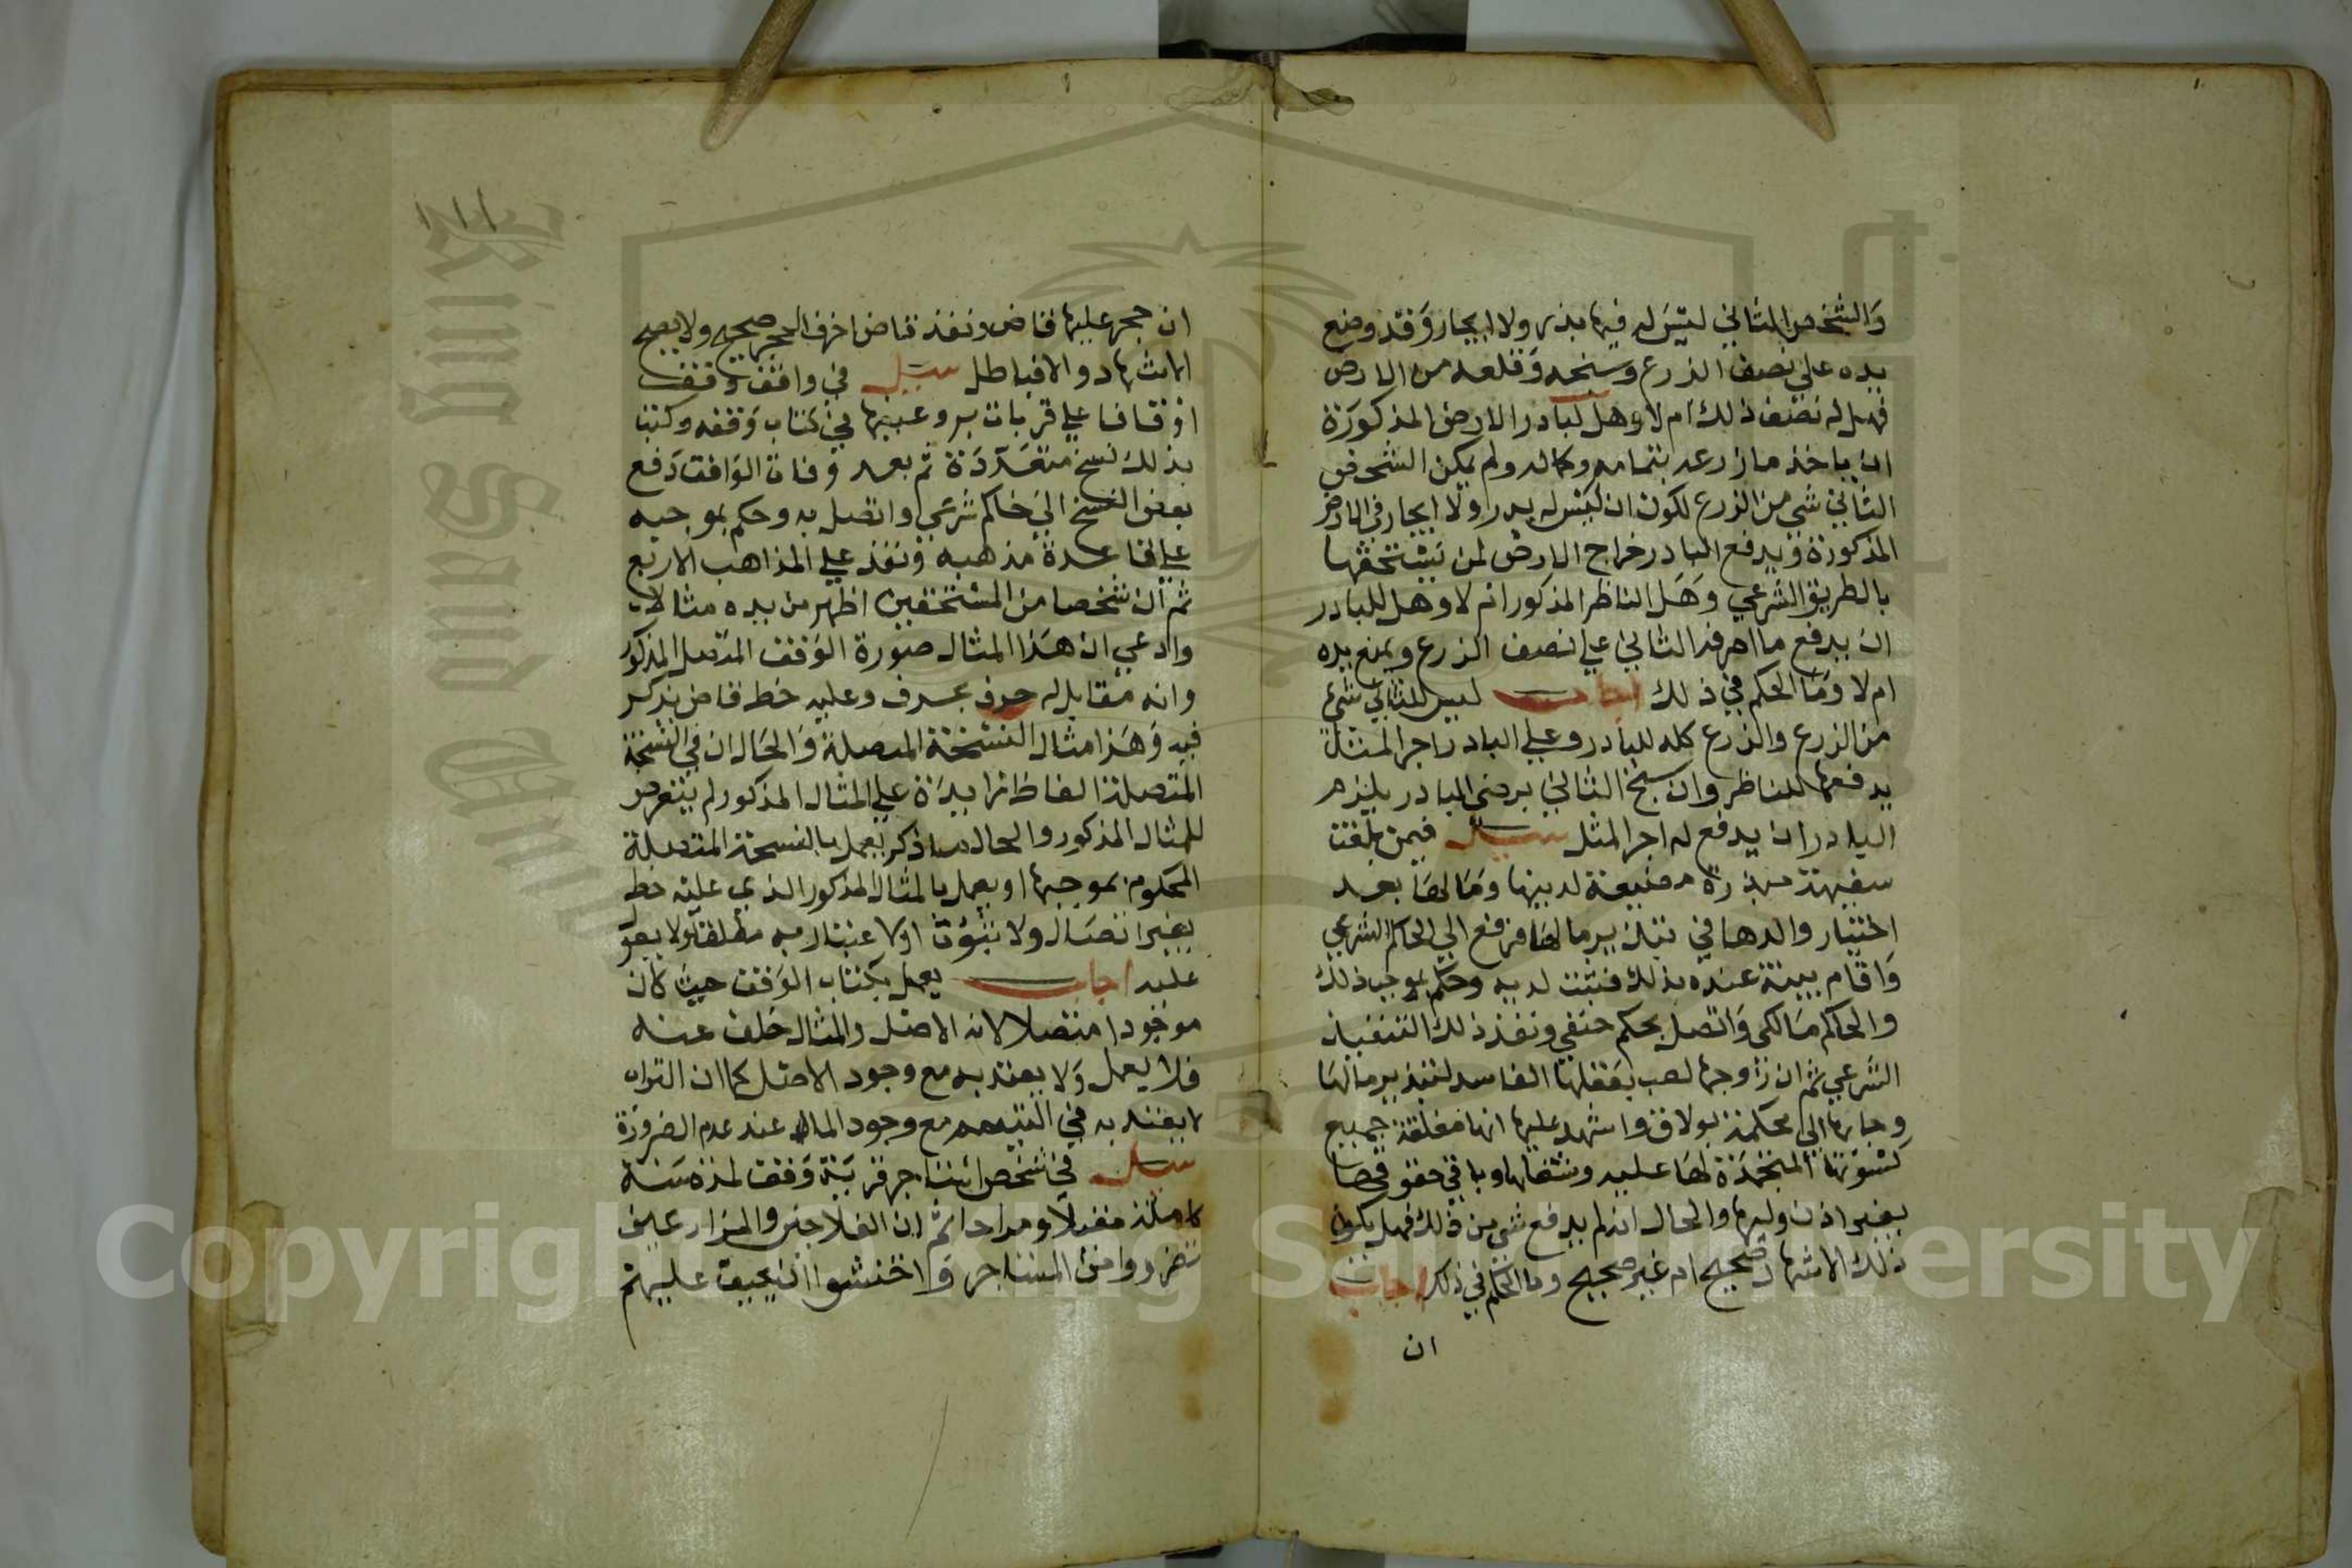 والشخص الثاني ليس له فيها بذر ولا ايجار وقد وضع
يده علي نصف الزرع وسنحه وقلعه من الارض
فهل له نصف ذلك ام لا وهل لبادر الارض المذكورة
ان ياخذ ما زرعه بتمامه وكماله ولم يكن الشخص
الثاني شي من الزرع لكون ان ليس له بدر ولا ايجار في الارض
المذكورة ويدفع البادر خراج الارض لمن يستحقها
بالطريق الشرعي وهل الناظر المذكور ام لا وهل للبادر
ان يدفع ما اصرفه الثاني علي نصف الزرع ويمنع يده
ام لا وما الحكم في ذلك اجاب ليس للثاني شي
من الزرع والزرع كله للبادر وعلي البادر اجر المثل
يدفعها للناظر وان سبخ الثاني برضي البادر يلزم
البادر ان يدفع له اجر المثل سئل فيمن بلغت
سفيهة مبذرة مضيعة لدينها ومالها بعد
اختبار والدها في تبذير مالها فرفع الي الحاكم الشرعي
واقام بينة عنده بذلك فثبت لديه وحكم بموجب ذلك
والحاكم مالكي واتصل بحكم حنفي ونفذ ذلك التنفيذ
الشرعي ثم ان زوجها لعب بعقلها الفاسد لتبذير مالها
وجا بها الي محكمة بولاق واشهد عليها انها مغلقة جميع
كسوتها المتجمدة لها عليه ونفقاتها وباقي حقوقها
بغير اذن وليها والحال انه لم يدفع شي من ذلك فهل يكون
ذلك الاشهاد صحيح ام غير صحيح وما الحكم في ذلك اجاب
ان
١١١
ان حجر عليها قاض ونفذه قاض اخر فالحجر صحيح ولا يصح
الاشهاد والا فباطل سئل في واقف وقف
اوقافا علي قربات بر وعينها في كتاب وقفه وكتب
بذلك نسخ متعددة ثم بعد وفات الواقف دفع
بعض النسخ الي حاكم شرعي واتصل به وحكم بموجبه
علي قاعدة مذهبه ونفذ علي المذاهب الاربع
ثم ان شخصا من المستحقين اظهر من يده مثالا
وادعي ان هذا المثال صورة الوقف المتصل المذكور
وانه مقابل له حرف بحرف وعليه خط قاض يذكر
فيه وهذا مثال النسخة المتصلة والحال ان في النسخة
المتصلة الفاظ زايدة علي المثال المذكور لم يتعرض
للمثال المذكور والحال ما ذكر يعمل بالنسخة المتصلة
المحكوم بموجبها او يعمل بالمثال المذكور الذي عليه خط
بغير اتصال ولا ثبوت او لا اعتبار به مطلقا ولا يعول
عليه اجاب يعمل بكتاب الوقف حيث كان
موجودا متصلا لانه الاصل والمثال خلف عنه
فلا يعمل ولا يعتد به مع وجود الاصل كما ان التراب
لا يعتد به في التيمم مع وجود الماء عند عدم الضرورة
سئل في شخص استاجر قرية وقف لمدة سنة
كاملة مقيلا ومراحا ثم ان الفلاحين والمزارعين
تضرروا من المستاجر واختشوا ان يحيف عليهم